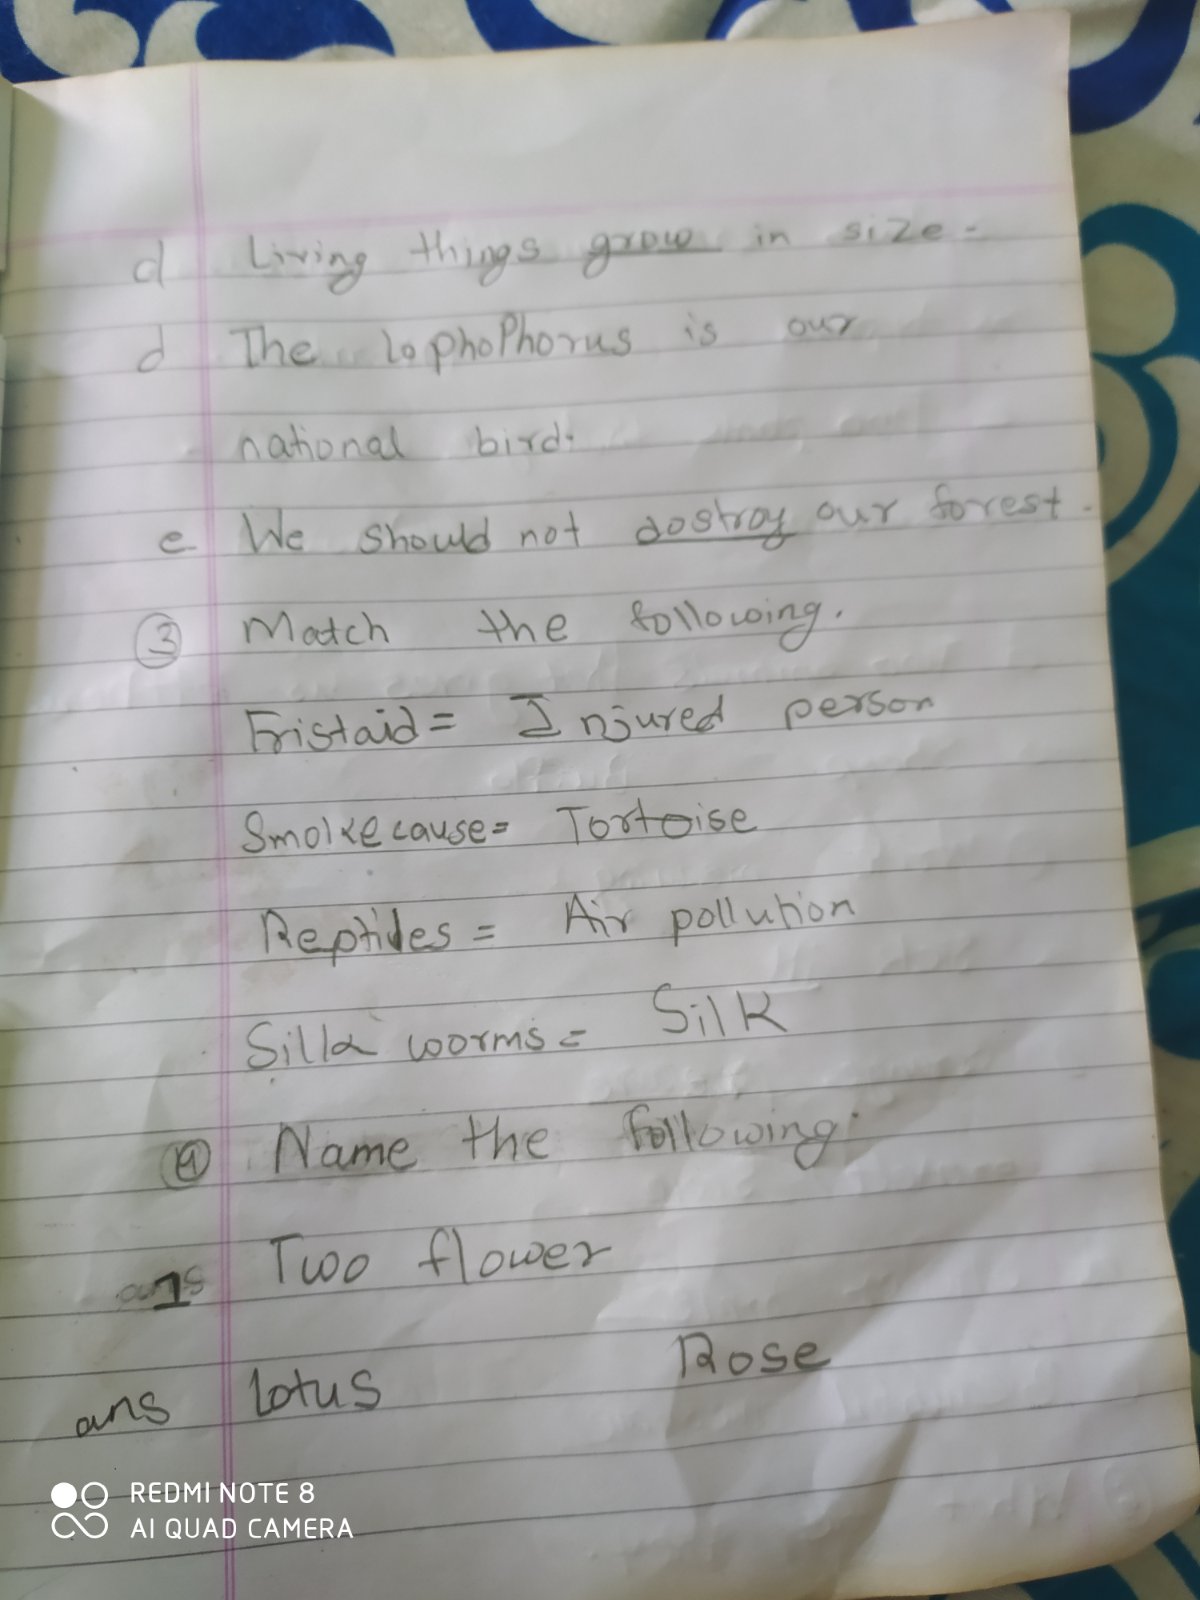 d Living things grow in size.
d The lophoPhorus is our
national bird.
e We should not dostroy our forest.
3 Match the following.
Fristaid = Injured person
Smoke cause = Tortoise
Reptiles = Air pollution
Silk worms = Silk
4 Name the following.
1 Two flower
ans lotus Rose
REDMI NOTE 8
AI QUAD CAMERA